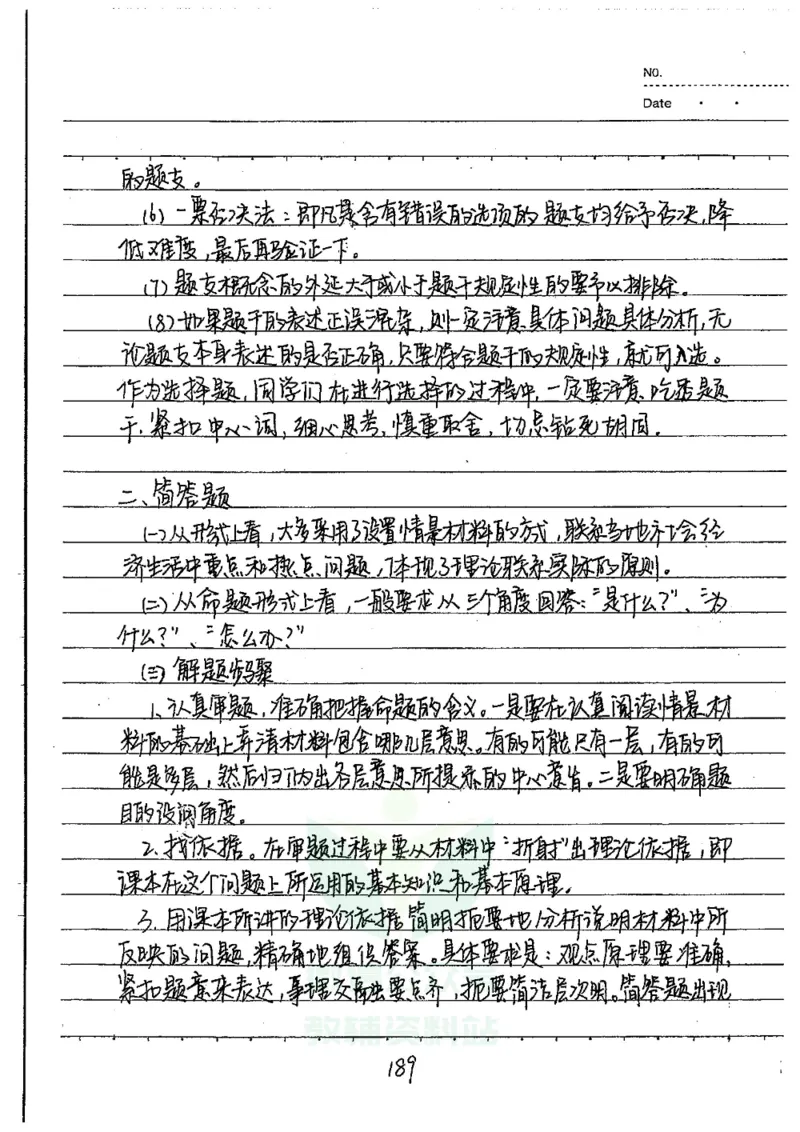 NO.
Date
的题支。
(6)一票否决法：即凡是含有错误的选项的题支均给予否决,降
低难度,最后再验证一下。
(7)题支概念的外延大于或小于题干规定性的要予以排除。
(8)如果题干的表述正误混杂,则一定注意具体问题具体分析,无
论题支本身表述的是否正确,只要符合题干的规定性,就可入选。
作为选择题,同学们在进行选择的过程中,一定要注意,吃透题
干,紧扣中心词,细心思考,慎重取舍,切忌钻死胡同。
二、简答题
(一)从形式上看,大多采用了设置情景材料的方式,联系当地社会经
济生活中重点和热点问题,体现了理论联系实际的原则。
(二)从命题形式上看,一般要求从三个角度回答:“是什么?”、“为
什么?”、“怎么办?”
(三)解题步骤
1、认真审题,准确把握命题的含义。一是要在认真阅读情景材
料的基础上弄清材料包含哪几层意思。有的可能只有一层,有的可
能是多层,然后归纳出各层意思所提示的中心意旨。二是要明确题
目的设问角度。
2、找依据。在审题过程中要从材料中“折射”出理论依据,即
课本在这个问题上所运用的基本知识和基本原理。
3、用课本所讲的理论依据简明扼要地分析说明材料中所
反映的问题,精确地组织答案。具体要求是:观点原理要准确,
紧扣题意来表达,事理交融要点齐,扼要简洁层次明。简答题出现
教辅资料站
189